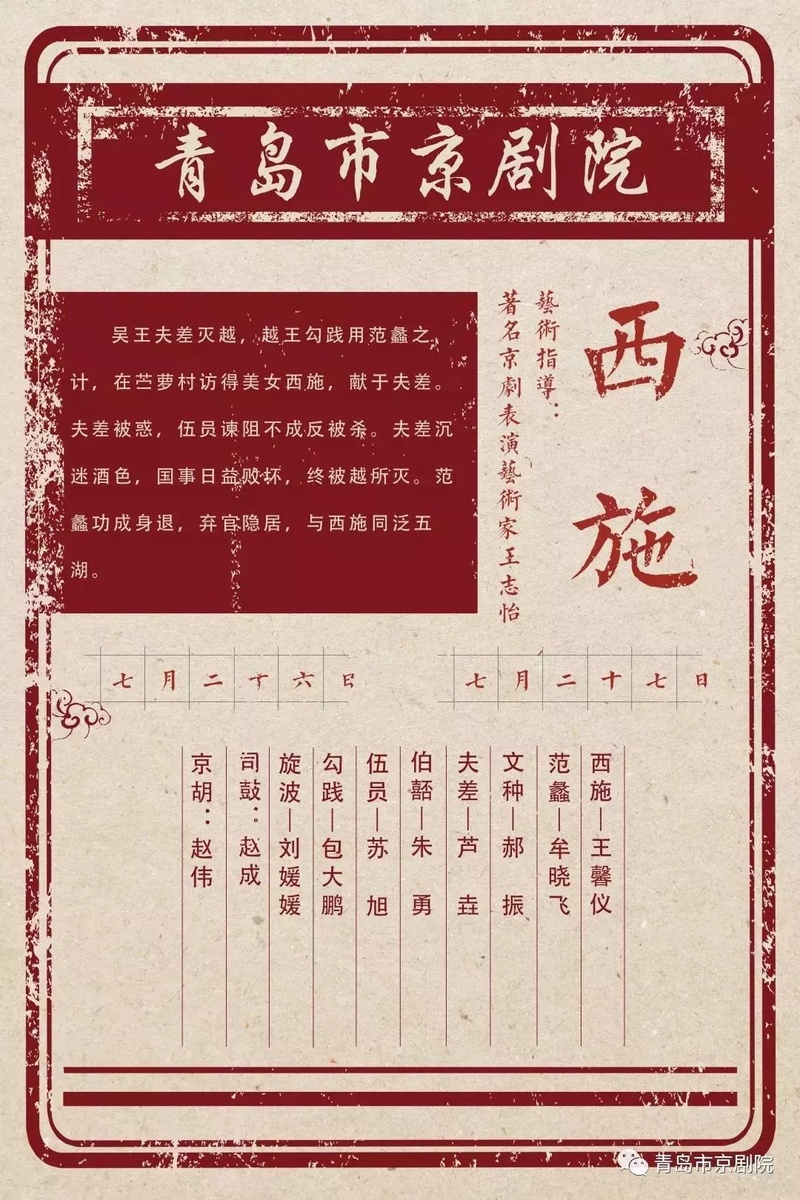 青岛市京剧院
西施
藝術指導：
著名京劇表演藝術家王志怡
吴王夫差灭越，越王勾践用范蠡之
计，在苎萝村访得美女西施，献于夫差。
夫差被惑，伍员谏阻不成反被杀。夫差沉
迷酒色，国事日益败坏，终被越所灭。范
蠡功成身退，弃官隐居，与西施同泛五
湖。
七月二十六日
七月二十七日
西施—王馨仪
范蠡—牟晓飞
文种—郝 振
夫差—芦 垚
伯嚭—朱 勇
伍员—苏 旭
勾践—包大鹏
旋波—刘媛媛
司鼓：赵成
京胡：赵伟
青岛市京剧院